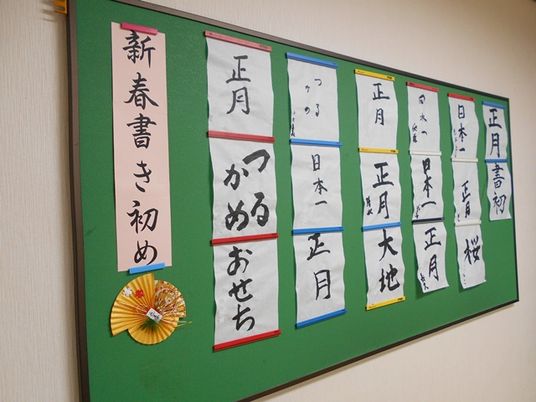 新春書き初め
正月
つるかめ
おせち
つる
かめ
日本一
正月
正月
正月
大地
日本一
日本一
正月
日本一
正月
桜
正月
書初